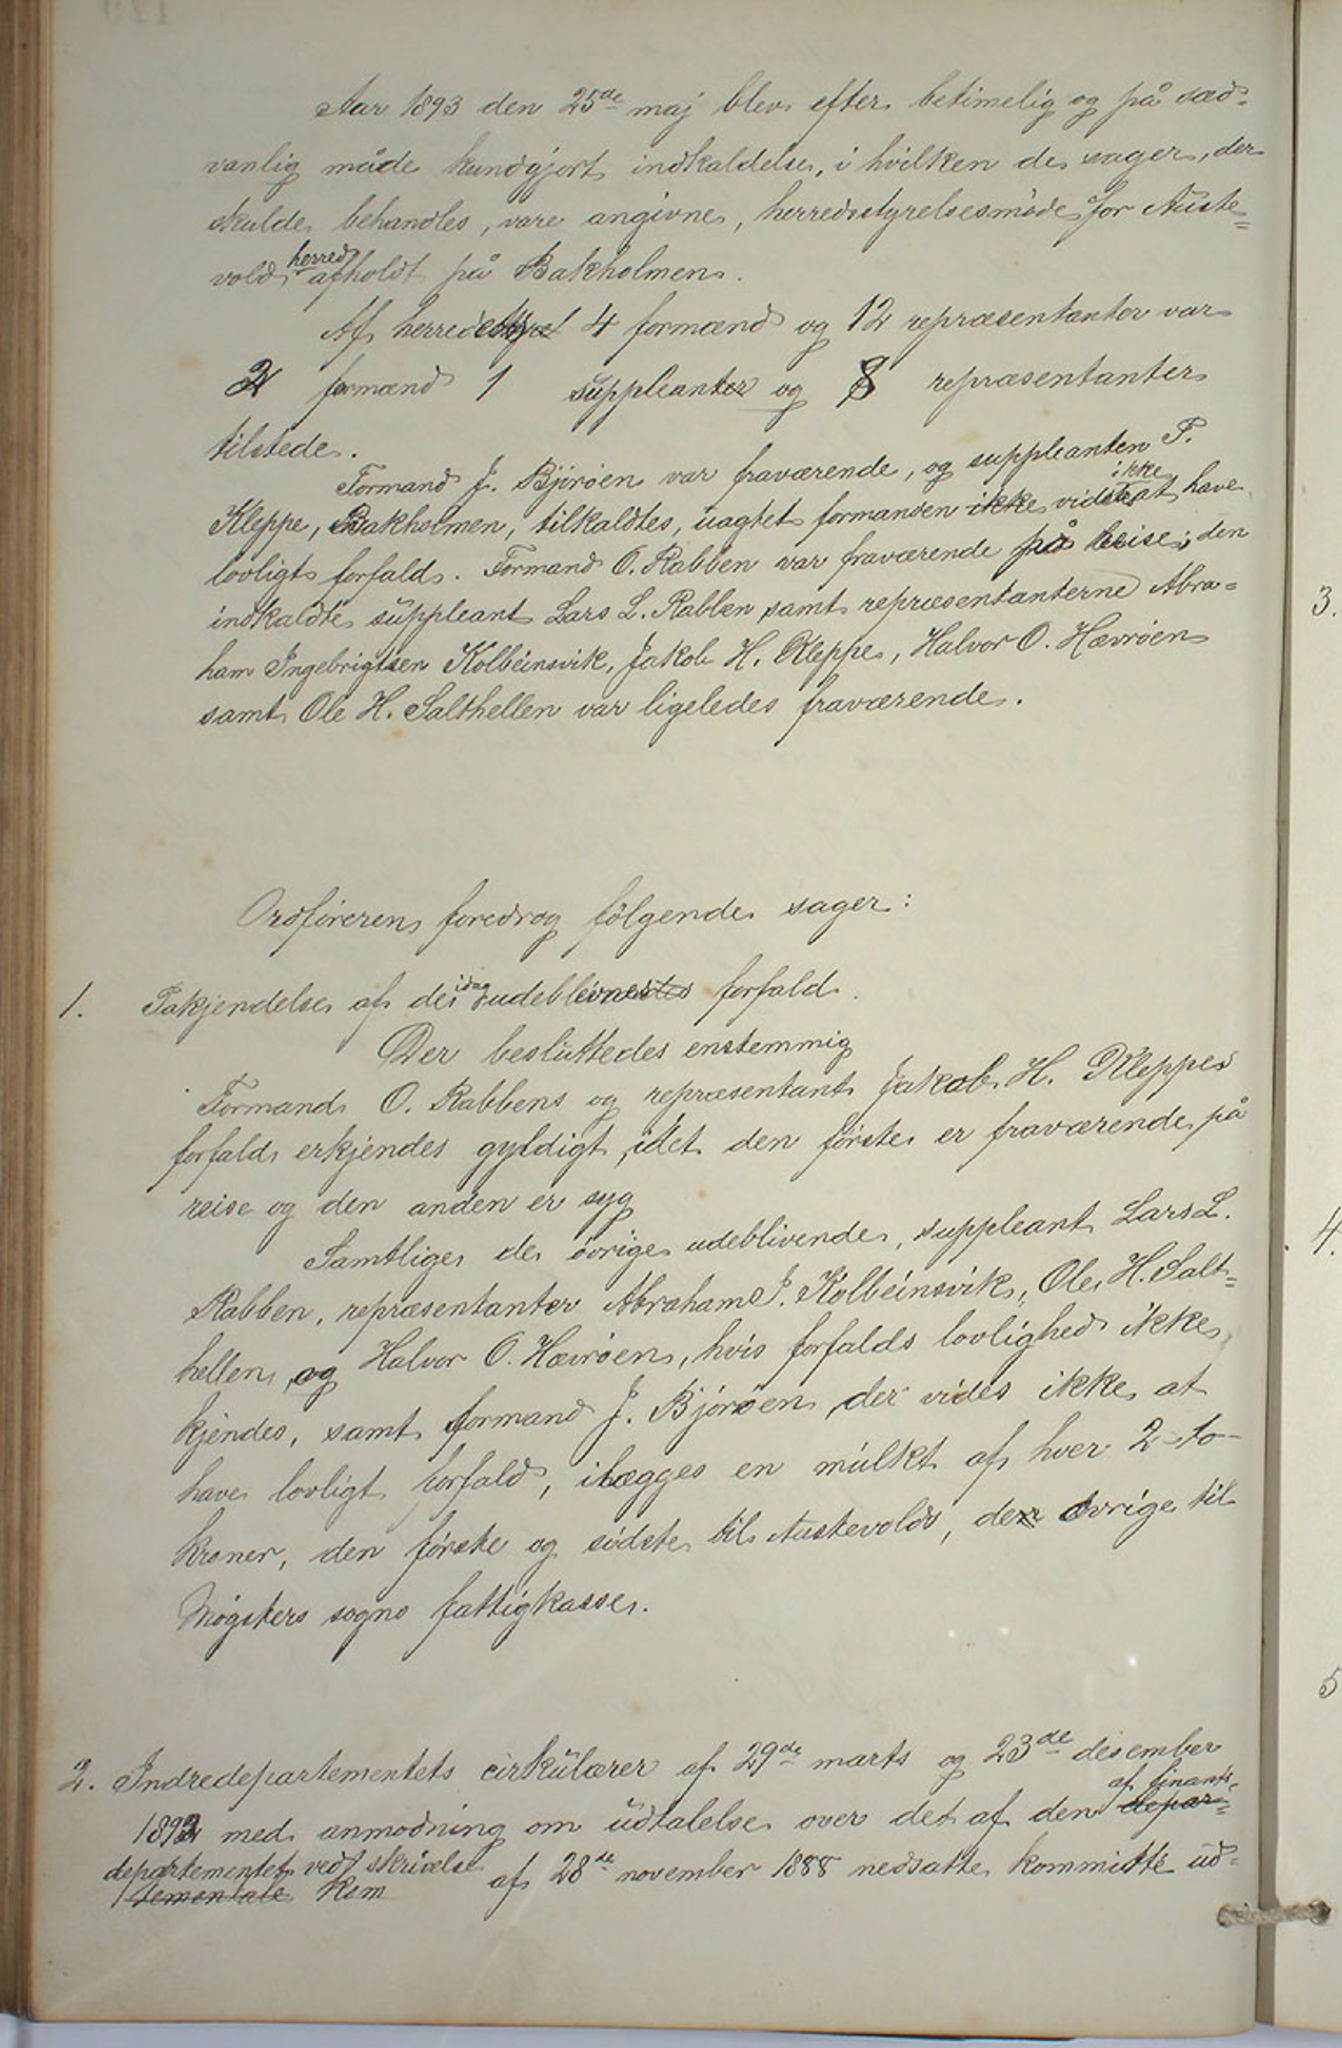 Aar 1893 den 25de maj blev efter betimelig og på sæd-
vanlig måde kundgjort indkaldelse, i hvilken de sager, der
skulde behandles, vare angivne, herredsstyrelsesmøde for Auste=
vold herred afholdt på Bakholmen.
Af herredsstyret 4 formænd og 12 repræsentanter var
2 formænd 1 suppleanter og 8 repræsentanter
tilstede.
Formand J. Bjørøen var fraværende, og suppleanten P.
Kleppe, Bakholmen, tilkaldtes, uagtet formanden ikke vides ikke at have
lovligt forfald. Formand O. Rabben var fraværende på reise; den
indkaldte suppleant Lars L. Rabben samt repræsentanterne Abra=
ham Ingebrigtsen Kolbeinsvik, Jakob H. Kleppe, Halvor O. Hævrøen
samt Ole H. Salthellen var ligeledes fraværende.
Ordføreren foredrog følgende sager:
1. Påkjendelse af de idag udeblevnes forfald.
Der besluttedes enstemmig
Formand O. Rabbens og repræsentant Jakob H. Kleppes
forfald erkjendes gyldigt, idet den første er fraværende på
reise og den anden er syg
Samtlige de øvrige udeblivende, suppleant Lars L.
Rabben, repræsentanter Abraham I. Kolbeinsvik, Ole H. Salt=
hellen og Halvor O. Hævrøen, hvis forfalds lovlighed ikke
kjendes, samt formand J. Bjørøen, der vides ikke at
have lovligt forfald, ilægges en mulkt af hver 2 to
kroner, den første og sidste til Austevolds, de øvrige til
Møgsters sogns fattigkasse.
2. Indredepartementets cirkulærer af 29de marts og 23de desember
1892 med anmodning om udtalelse over det af den af finants- depar=
departementet ved skrivelse temontale Kom af 28de november 1888 nedsatte kommitté ud=
3.
4.
5